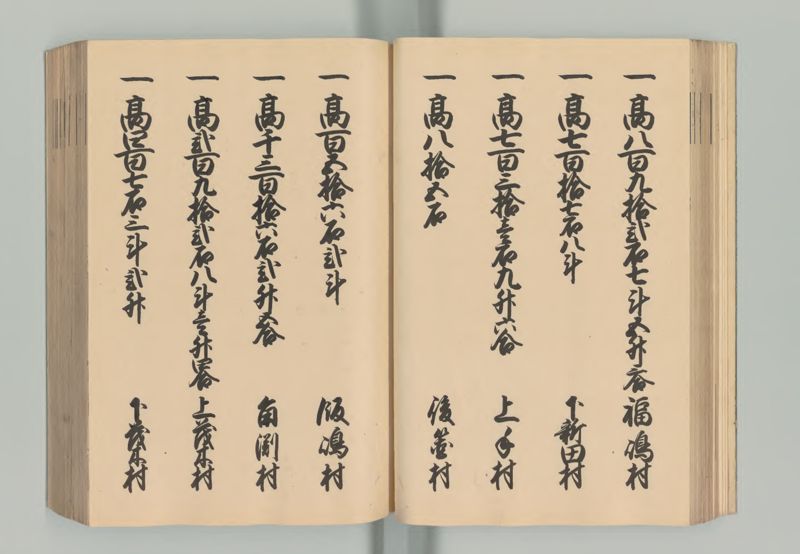 一 高八百九拾弐石七斗五升壱合 福嶋村
一 高七百拾七石八斗 下新田村
一 高七百三拾壱石九升六合 上手村
一 高八拾五石 後箇村
一 高百五拾六石弐斗 飯嶋村
一 高千三百拾六石弐升五合 角渕村
一 高弐百九拾弐石八斗壱升四合 上茂木村
一 高四百七石三斗弐升 下茂木村